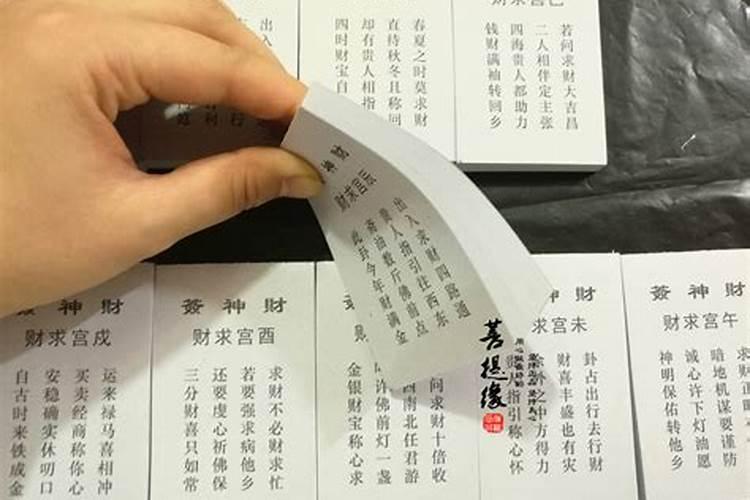 出入
春夏之时莫求财
直待秋冬且称回
却有贵人相指
四时财宝自
若问求财大吉昌
二人相伴定主张
四海贵人都助力
钱财满袖转回乡
财求宫
出入求财四路通
贵人指引往西东
斋油数斤佛前点
此卦今年财满金
菩提缘
簽神財
财求宫戌
运来禄马喜相冲
买卖经商称你心
安稳确实休叨口
自古时来铁成金
簽神財
财求宫酉
求财不必财求忙
若要强求病他乡
还要虔心祈佛保
三分财喜只如常
问求财十倍收
西南北任君游
许佛前灯一盏
金银财宝称心求
財
求宫未
卦占出行去行财
财喜丰盛也有灾
外之中方得力
指引称心怀
簽神財
财求宫午
暗地机谋要谨防
诚心许下灯油愿
神明保佑转他乡